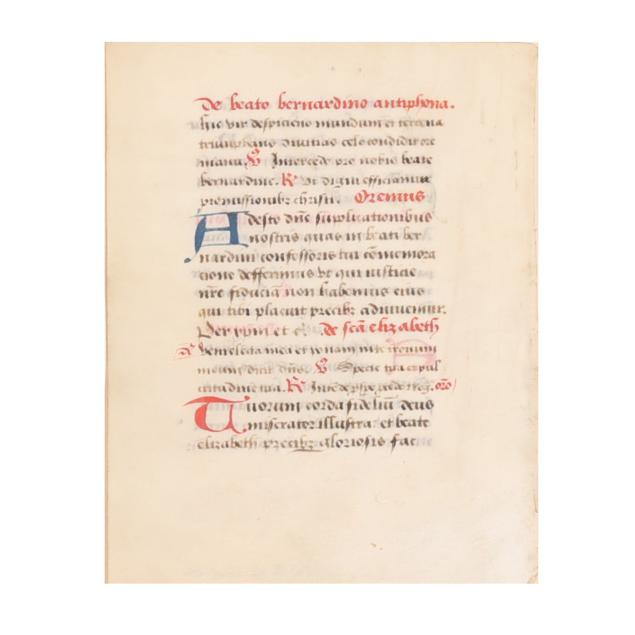 De beato bernardino antiphona.
hic vir despiciens mundum et terrena
triumphans divitias celo condidit ore
manu. V Intercede pro nobis beate
bernardine. R Ut digni efficiamur
promissionibz christi. Oremus
Adesto dñe supplicationibus
nostris quas in beati ber
nardini confessoris tui cõmemora
cione defferimus vt qui iusticie
nr̃e fiduciã non habemus eius
qui tibi placuit precibz adiuvemur.
Per xpm et c. de scã elizabeth
Veni electa mea et ponam in te tronum
meum dicit dñs. V Specie tua et pul
critudine tua. R Intẽde pspe pcede et reg. orõ
Tuorum corda fideliũ deus
miserator illustra. et beate
elizabeth precibz gloriosis fac